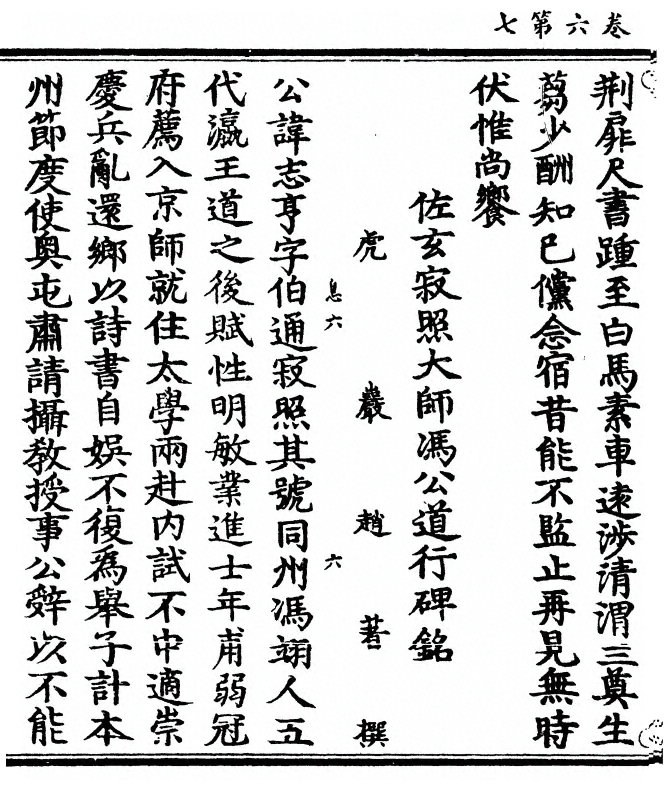 卷六第七
荆扉尺書踵至白馬素車遠涉清渭三奠生
芻少酬知己儻念宿昔能不監止再見無時
伏惟尚饗
佐玄寂照大師馮公道行碑銘
虎巖趙著撰
息六 六
公諱志亨字伯通寂照其號同州馮翊人五
代瀛王道之後賦性明敏業進士年甫弱冠
府薦入京師就住太學兩赴内試不中適崇
慶兵亂還鄉以詩書自娛不復為舉子計本
州節度使奧屯肅請攝教授事公辭以不能